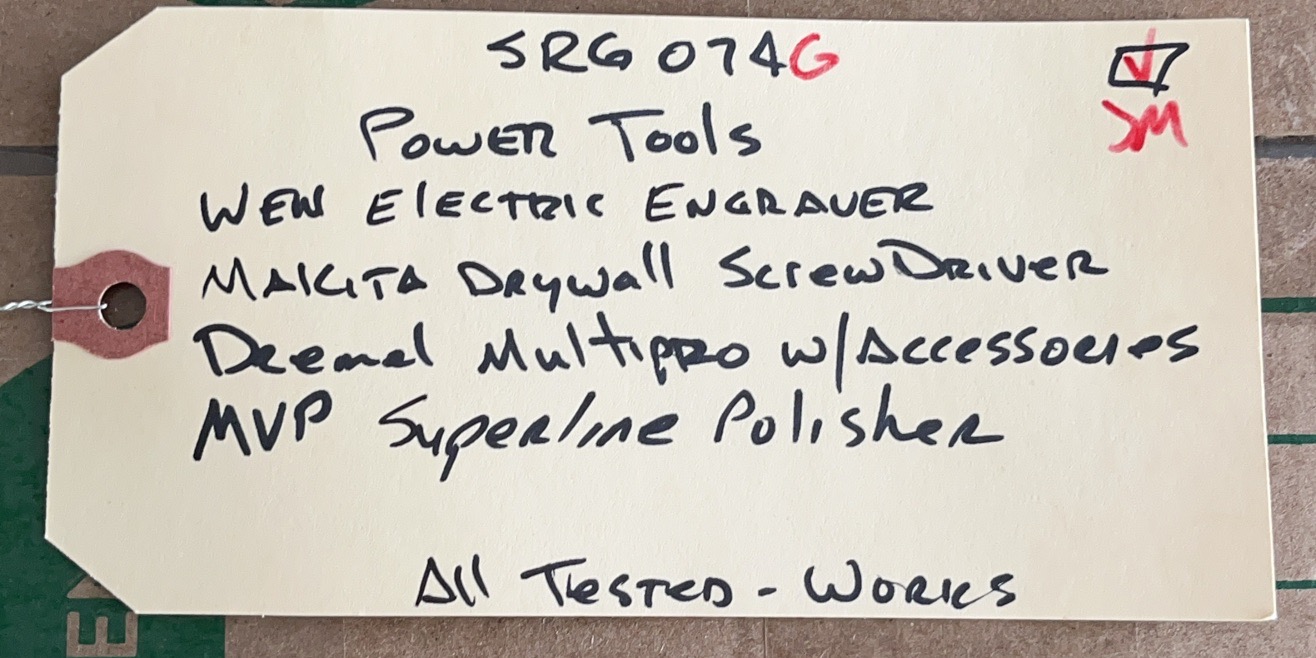 SRG 074G
JM
POWER Tools
WEN ElECTRIC ENGRAVER
MAKITA DRywall ScrewDRIVER
Dremel Multipro w/Accessories
MVP Superline Polisher
All TESTED - WORKS
E